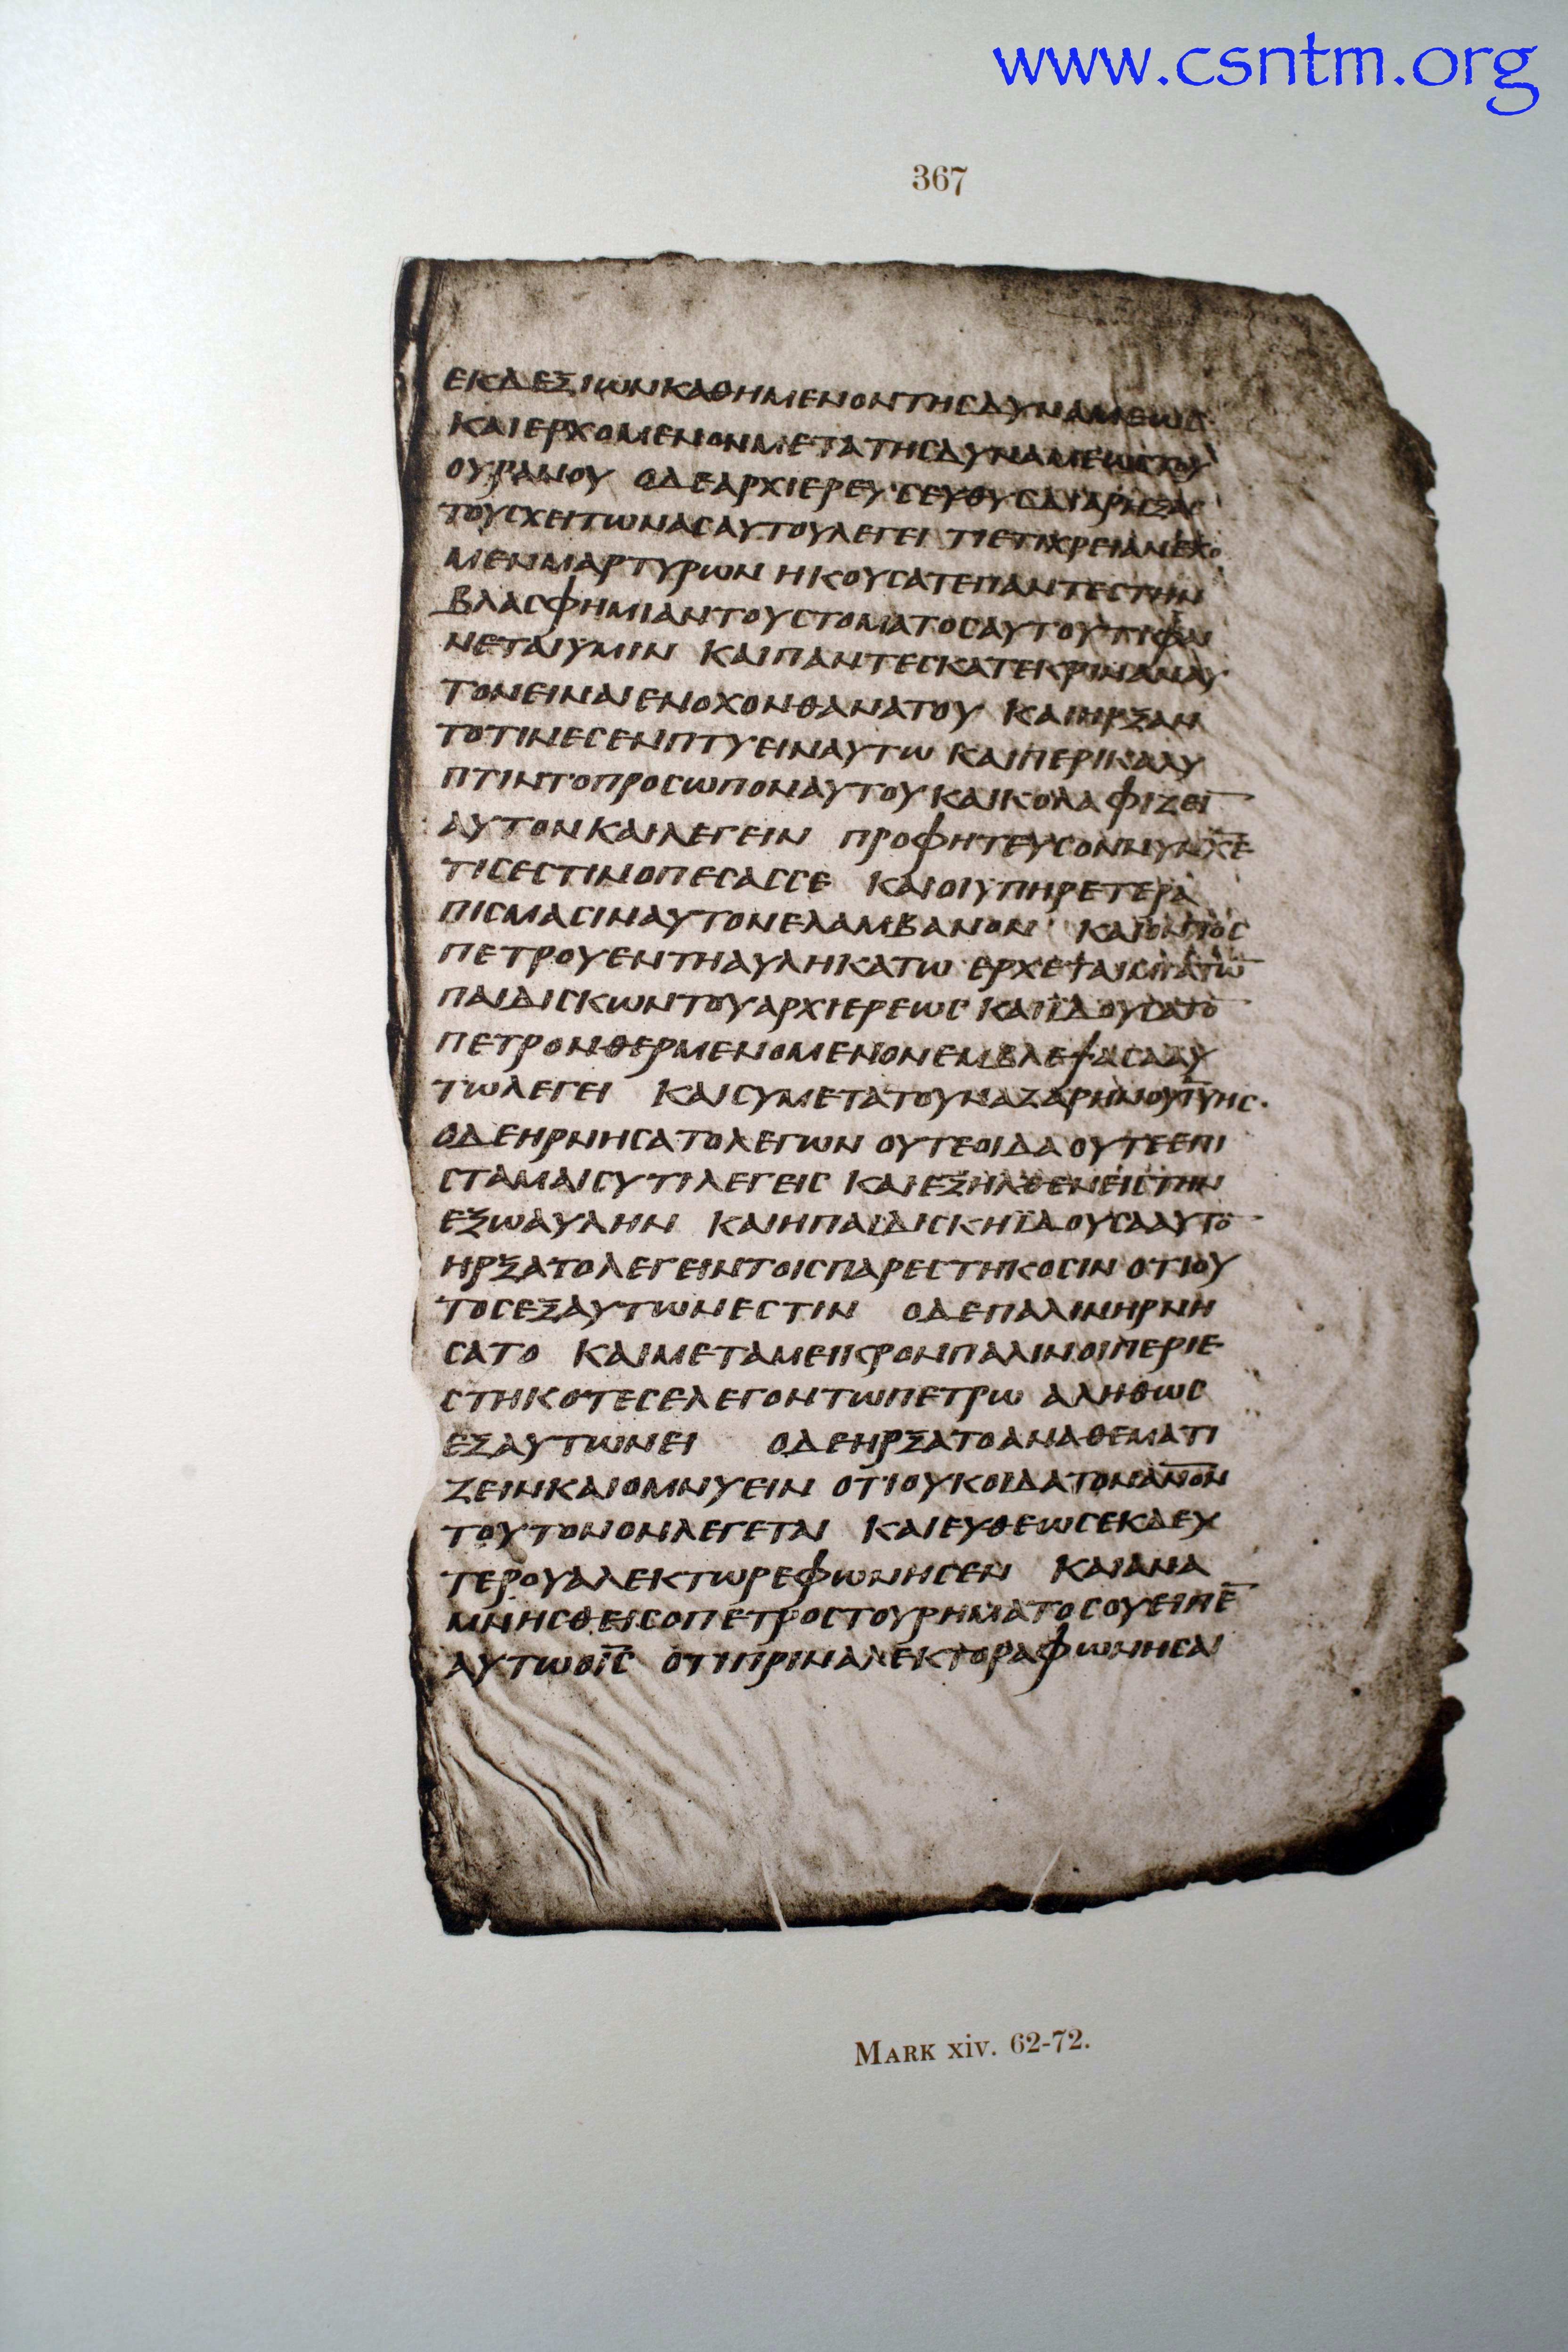 www.csntm.org
367
ΕΚΔΕΞΙΩΝΚΑΘΗΜΕΝΟΝΤΗCΔΥΝΑΜΕΩC
ΚΑΙΕΡΧΟΜΕΝΟΝΜΕΤΑΤΗCΔΥΝΑΜΕΩCΤΟΥ
ΟΥΡΑΝΟΥ ΟΔΕΑΡΧΙΕΡΕΥCΕΥΘΥCΔΙΑΡΗΞΑC
ΤΟΥCΧΕΙΤΩΝΑCΑΥΤΟΥΛΕΓΕΙ ΤΙΕΤΙΧΡΕΙΑΝΕΧΟ
ΜΕΝΜΑΡΤΥΡΩΝ ΗΚΟΥCΑΤΕΠΑΝΤΕCΤΗΝ
ΒΛΑCΦΗΜΙΑΝΤΟΥCΤΟΜΑΤΟCΑΥΤΟΥΤΙΦΑΙ
ΝΕΤΑΙΥΜΙΝ ΚΑΙΠΑΝΤΕCΚΑΤΕΚΡΙΝΑΝΑΥ
ΤΟΝΕΙΝΑΙΕΝΟΧΟΝΘΑΝΑΤΟΥ ΚΑΙΗΡΞΑΝ
ΤΟΤΙΝΕCΕΝΠΤΥΕΙΝΑΥΤΩ ΚΑΙΠΕΡΙΚΑΛΥ
ΠΤΙΝΤΟΠΡΟCΩΠΟΝΑΥΤΟΥΚΑΙΚΟΛΑΦΙΖΕΙ̅
ΑΥΤΟΝΚΑΙΛΕΓΕΙΝ ΠΡΟΦΗΤΕΥCΟΝΝΥΝΧ̅Ε̅
ΤΙCΕCΤΙΝΟΠΕCΑCCΕ ΚΑΙΟΙΥΠΗΡΕΤΕΡΑ
ΠΙCΜΑCΙΝΑΥΤΟΝΕΛΑΜΒΑΝΟΝ ΚΑΙΟΝΤΟC
ΠΕΤΡΟΥΕΝΤΗΑΥΛΗΚΑΤΩ ΕΡΧΕΤΑΙΜΙΑΤΩ̅
ΠΑΙΔΙCΚΩΝΤΟΥΑΡΧΙΕΡΕΩC ΚΑΙΪΔΟΥCΑΤΟ̅
ΠΕΤΡΟΝΘΕΡΜΕΝΟΜΕΝΟΝΕΜΒΛΕΨΑCΑΑΥ
ΤΩΛΕΓΕΙ ΚΑΙCΥΜΕΤΑΤΟΥΝΑΖΑΡΗΝΟΥΙ̅Υ̅ΗC·
ΟΔΕΗΡΝΗCΑΤΟΛΕΓΩΝ ΟΥΤΕΟΙΔΑΟΥΤΕΕΠΙ
CΤΑΜΑΙCΥΤΙΛΕΓΕΙC ΚΑΙΕΞΗΛΘΕΝΕΙCΤΗΝ
ΕΞΩΑΥΛΗΝ ΚΑΙΗΠΑΙΔΙCΚΗΪΔΟΥCΑΑΥΤΟ̅
ΗΡΞΑΤΟΛΕΓΕΙΝΤΟΙCΠΑΡΕCΤΗΚΟCΙΝ ΟΤΙΟΥ
ΤΟCΕΞΑΥΤΩΝΕCΤΙΝ ΟΔΕΠΑΛΙΝΗΡΝΗ
CΑΤΟ ΚΑΙΜΕΤΑΜΕΙΚΡΟΝΠΑΛΙΝΟΙΠΕΡΙΕ
CΤΗΚΟΤΕCΕΛΕΓΟΝΤΩΠΕΤΡΩ ΑΛΗΘΩC
ΕΞΑΥΤΩΝΕΙ ΟΔΕΗΡΞΑΤΟΑΝΑΘΕΜΑΤΙ
ΖΕΙΝΚΑΙΟΜΝΥΕΙΝ ΟΤΙΟΥΚΟΙΔΑΤΟΝΑ̅Ν̅Ο̅Ν̅
ΤΟΥΤΟΝΟΝΛΕΓΕΤΑΙ ΚΑΙΕΥΘΕΩCΕΚΔΕΥ
ΤΕΡΟΥΑΛΕΚΤΩΡΕΦΩΝΗCΕΝ ΚΑΙΑΝΑ
ΜΝΗCΘΕΙCΟΠΕΤΡΟCΤΟΥΡΗΜΑΤΟCΟΥΕΙΠΕ̅
ΑΥΤΩΟΙ̅C̅ ΟΤΙΠΡΙΝΑΛΕΚΤΟΡΑΦΩΝΗCΑΙ
MARK xiv. 62-72.